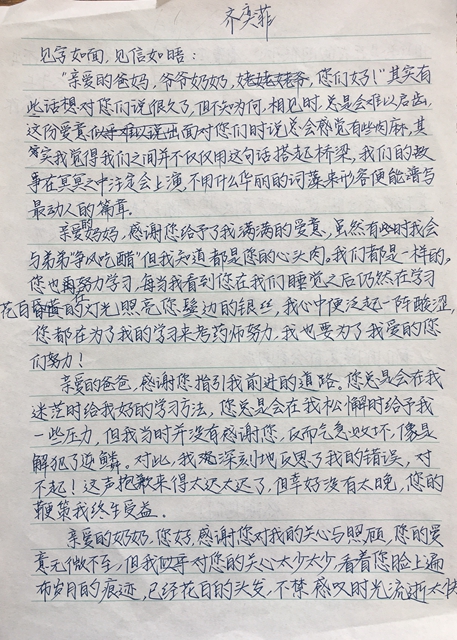 齐奕菲
见字如面，见信如晤：
"亲爱的爸妈，爷爷奶奶，姥姥姥爷，您们好！"其实有
些话想对你们说很久了，但不知为何，相见时总是会难以启齿，
这份爱意似乎难以说出面对你们时说总会感觉有些肉麻，其
实我觉得我们之间并不仅仅用这句话搭起桥梁，我们的故
事在冥冥之中注定会上演，不用什么华丽的词藻来形容便能谱写
最动人的篇章。
亲爱的妈妈，感谢您给予了我满满的爱意，虽然有些时我会
与弟弟"争风吃醋"但我知道都是您的心头肉。我们都是一样的。
您也再努力学习，每当我看到您在我们睡觉之后仍然在学习
花白昏黄的灯光照亮您鬓边的银丝，我心中便泛起一阵酸涩，
您都在为了我的学习来考药师努力，我也要为了我爱的您
们努力！
亲爱的爸爸，感谢您指引我前进的道路。您总是会在我
迷茫时给我好的学习方法，您总是会在我松懈时给予我
一些压力，但我当时并没有感谢您，反而气急败坏，像是
解犯了逆鳞。对此，我深刻地反思了我的错误，对
不起！这声抱歉来得太迟太迟了，但幸好没有太晚，您的
鞭策我终生受益。
亲爱的奶奶，您好，感谢您对我的关心与照顾，您的爱
意无微不至，但我似乎对您的关心太少太少，看着您脸上遍
布岁月的痕迹，已经花白的头发，不禁感叹时光流逝太快